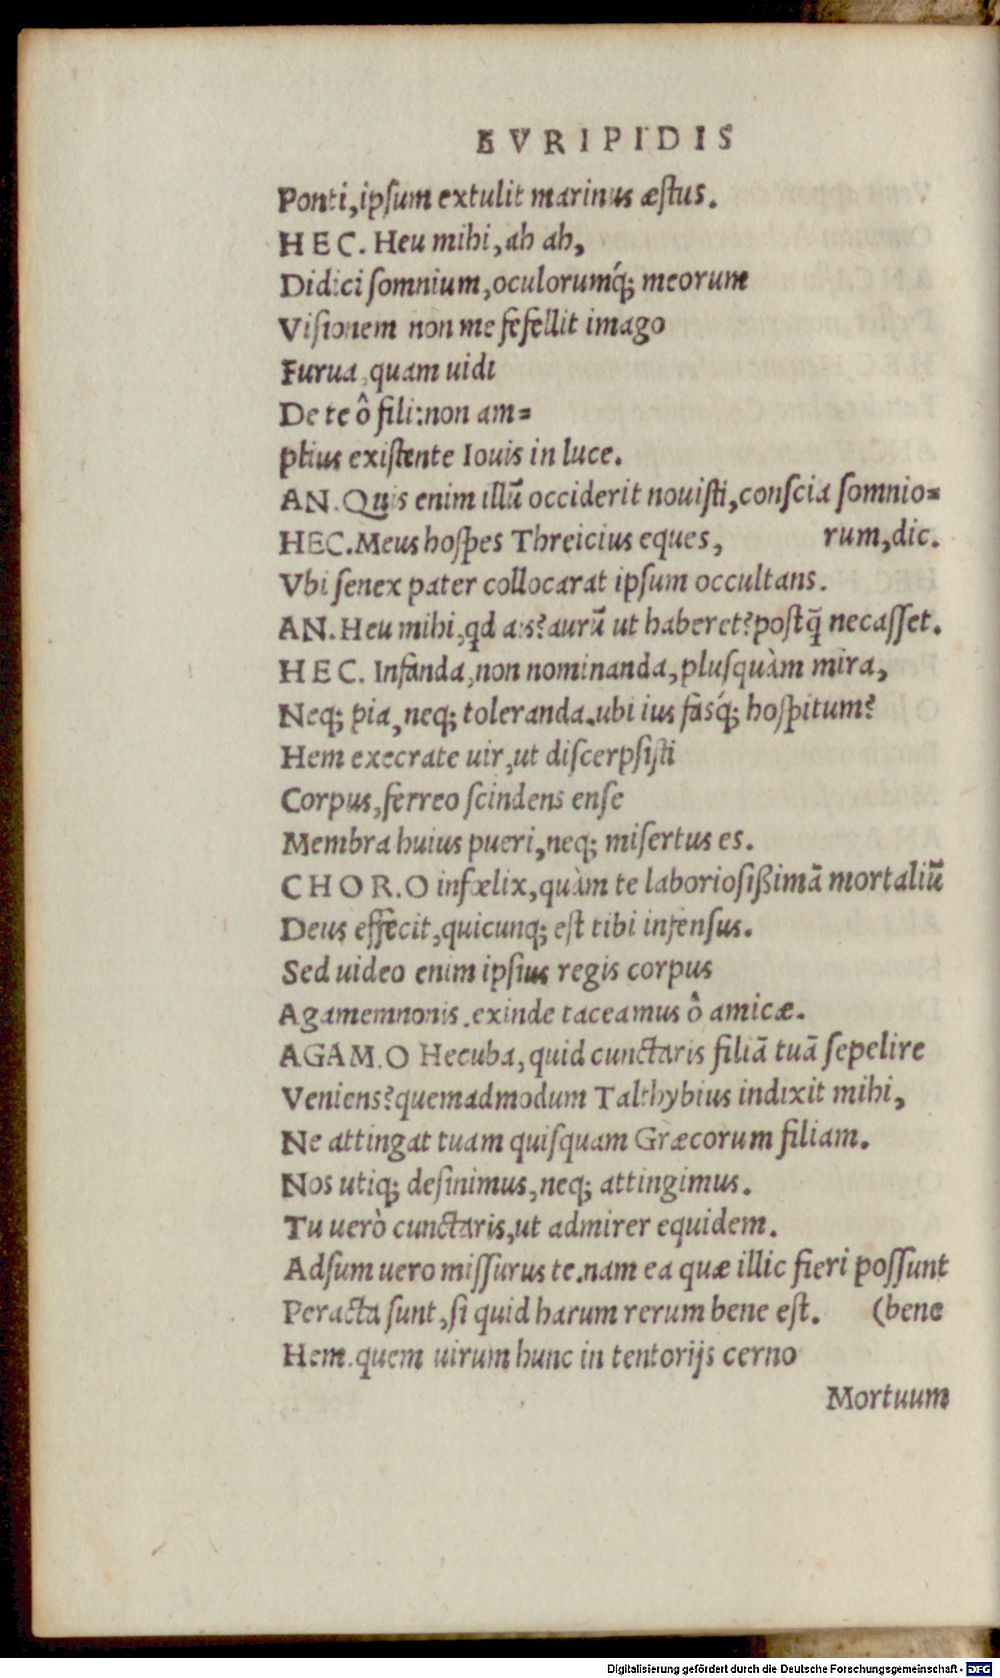 EVRIPIDIS
Ponti, ipsum extulit marinus æstus.
HEC. Heu mihi, ah ah,
Didici somnium, oculorumq́; meorum
Visionem non me fefellit imago
Furua, quam uidi
De te ô fili: non am=
plius existente Iouis in luce.
AN. Quis enim illū occiderit nouisti, conscia somnio=
HEC. Meus hospes Threicius eques, rum, dic.
Vbi senex pater collocarat ipsum occultans.
AN. Heu mihi, qd ais? aurū ut haberet? postq̄ necasset.
HEC. Infanda, non nominanda, plusquàm mira,
Neq; pia, neq; toleranda. ubi ius fasq́; hospitum?
Hem execrate uir, ut discerpsisti
Corpus, ferreo scindens ense
Membra huius pueri, neq; misertus es.
CHOR. O infœlix, quàm te laboriosißimā mortaliū
Deus effecit, quicunq; est tibi infensus.
Sed uideo enim ipsius regis corpus
Agamemnonis. exinde taceamus ô amicæ.
AGAM. O Hecuba, quid cunctaris filiā tuā sepelire
Veniens? quemadmodum Talthybius indixit mihi,
Ne attingat tuam quisquam Græcorum filiam.
Nos utiq; desinimus, neq; attingimus.
Tu uerò cunctaris, ut admirer equidem.
Adsum uero missurus te. nam ea quæ illic fieri possunt
Peracta sunt, si quid harum rerum bene est. (bene
Hem. quem uirum hunc in tentorijs cerno
Mortuum
Digitalisierung gefördert durch die Deutsche Forschungsgemeinschaft - DFG